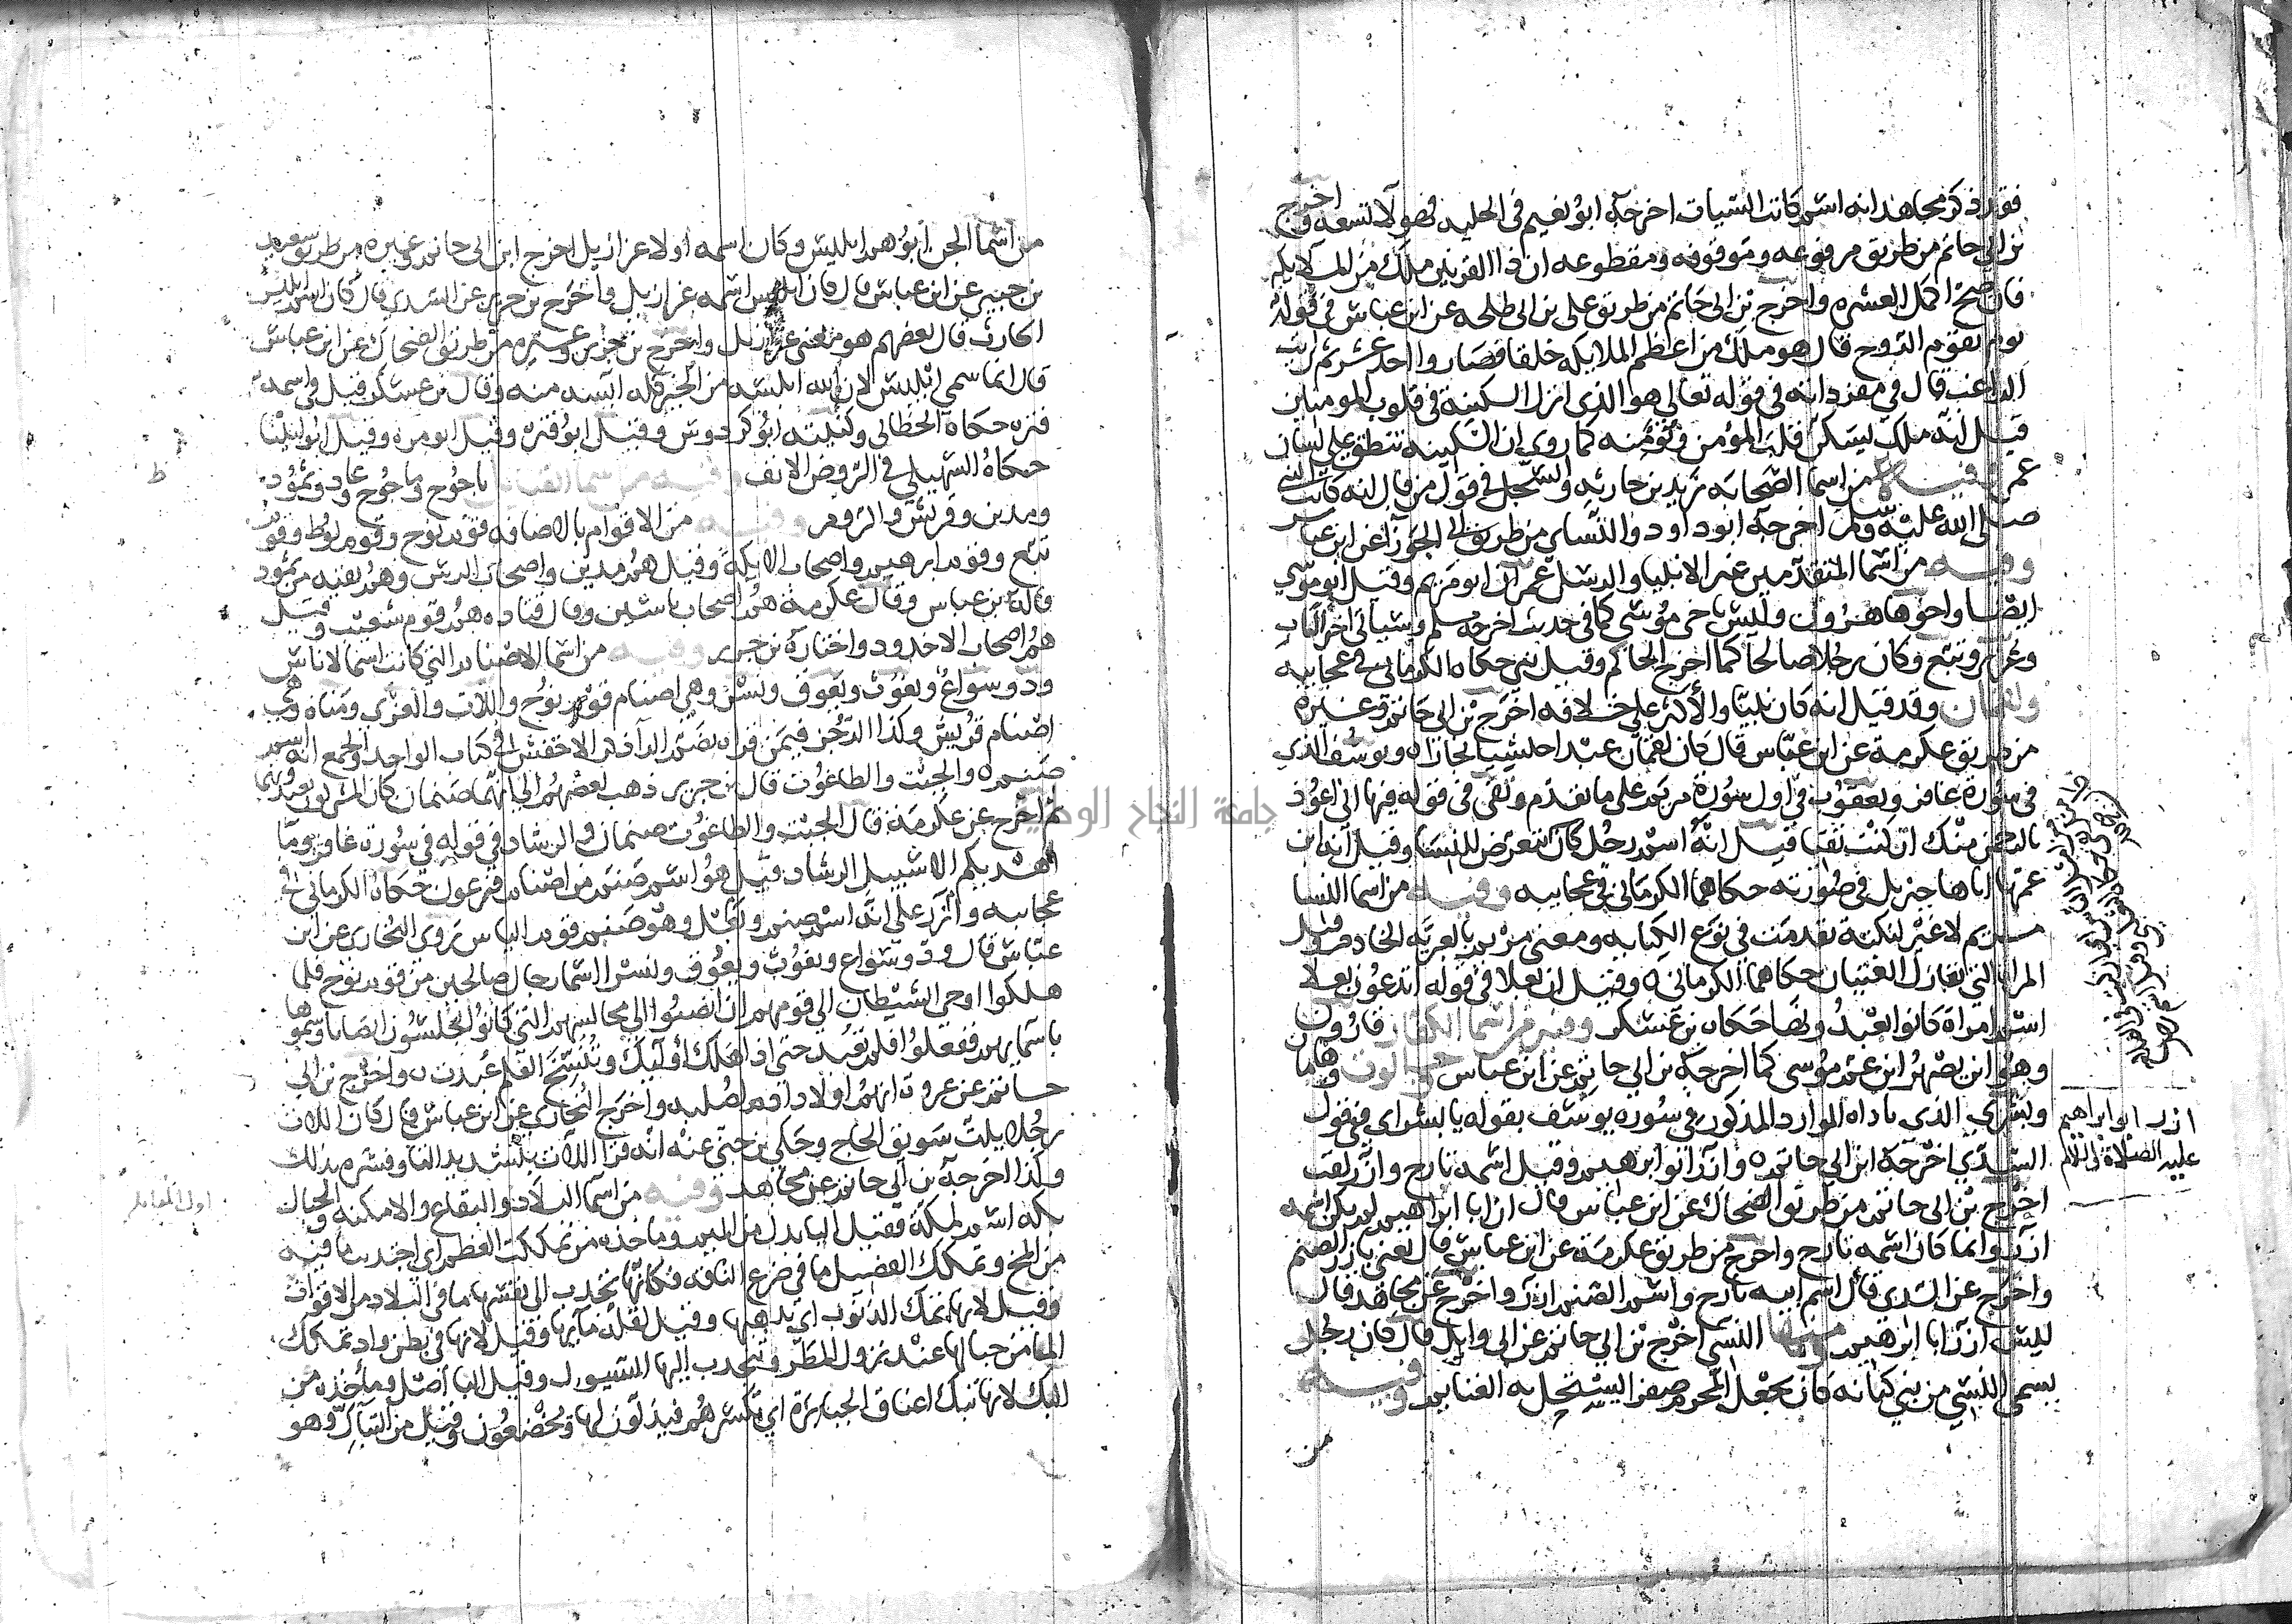 فقد ذكر مجاهد انه اسم كاتب السيات اخرجه ابو نعيم في الحليه فهولا تسعه واخرج
بن ابي حاتم من طريق مرفوعه وموقوفه ومقطوعه ان ذا القرنين ملك من الملايكه
فان صح اكمل العشره واخرج بن ابي حاتم من طريق علي بن ابي طلحه عن ابن عباس في قوله
يوم يقوم الروح قال هو ملك من اعظم الملايكه خلقا فصاروا احد عشر ثم رايت
الراغب قال في مفرداته في قوله تعالى هو الذي انزل السكينه في قلوب المومنين
قيل انه ملك يسكن قلب المؤمن ويؤمنه كما روي ان السكينه تنطق على لسان
عمر وفيه من اسما الصحابه زيد بن حارثه والسجل في قول من قال انه كاتب النبي
صلى الله عليه وسلم اخرجه ابو داود والنساي من طريق ابي الجوزا عن ابن عباس
وفيه من اسما المتقدمين غير الانبيا والرسل عمران ابو مريم وقيل ابو موسي
ايضا واخوها هرون وليس باخي موسي كما في حديث اخرجه مسلم وسياتي اخر الكتاب
وعزير وتبع وكان رجلا صالحا كما اخرج الحاكم وقيل نبي حكاه الكرماني في عجايبه
ولقمان وقد قيل انه كان نبيا والاكثر على خلافه اخرج بن ابي حاتم وغيره
من طريق عكرمة عن ابن عباس قال كان لقمان عبدا حبشيا نجارا ويوسف الذي
في سورة غافر ويعقوب في اول سورة مريم على ما تقدم وتقي في قوله فيها اني اعوذ
بالرحمن منك ان كنت تقيا قيل انه اسم رجل كان يتعرض للنسا وقيل انه ابن
عمها اتاها جبريل في صورته حكاهما الكرماني في عجايبه وفيه من اسما النسا
مريم لا غير لنكتة تقدمت في نوع الكنايه ومعنى مريم بالعبريه الخادم وقيل
المراة التي تغازل الفتيان حكاهما الكرماني وقيل ان بعلا في قوله اتدعون بعلا
اسم امراة كانوا يعبدونها حكاه بن عسكر وفيه من اسما الكفار قارون
وهو ابن يصهر ابن عم موسى كما اخرجه بن ابي حاتم عن ابن عباس وجالوت وهامان
وبشري الذي ناداه الوارد المذكور في سوره يوسف بقوله يا بشراي في قول
السدي اخرجه ابن ابي حاتم وازر ابو ابرهيم وقيل اسمه تارح وازر لقب
اخرج بن ابي حاتم من طريق الضحاك عن ابن عباس قال ان ابا ابراهيم لم يكن اسمه
ازر وانما كان اسمه تارح واخرج من طريق عكرمة عن ابن عباس قال يعني بازر الصنم
واخرج عن السدي قال اسم ابيه تارح واسم الصنم ازر واخرج عن مجاهد قال
ليس ازر ابا ابرهيم ومنها النسي اخرج بن ابي حاتم عن ابي وايل قال كان رجل
يسمى النسي من بني كنانه كان يجعل المحرم صفرا ليستحل به الغنايم وفيه
من
ازر ابو ابراهيم
عليه الصلاة والسلام
من اسما الجن ابوهم ابليس وكان اسمه اولا عزازيل اخرج ابن ابي حاتم وغيره من طريق سعيد
بن جبير عن ابن عباس قال كان ابليس اسمه عزازيل واخرج بن جرير عن السدي قال كان اسم ابليس
الحارث قال بعضهم هو معنى عزازيل واخرج بن جرير وغيره من طريق الضحاك عن ابن عباس
قال انما سمي ابليس لان الله ابلسه من الخير كله ايسه منه وقال بن عسكر قيل في اسمه
قتره حكاه الخطابي وكنيته ابو كردوس وقيل ابو قتره وقيل ابو مره وقيل ابو لبينا
حكاه السهيلي في الروض الانف وفيه من اسما القبايل ياجوج وماجوج وعاد وثمود
ومدين وقريش والروم وفيه من الاقوام بالاضافه قوم نوح وقوم لوط وقوم
تبع وقوم ابرهيم واصحاب الايكة وقيل هم مدين واصحاب الرس وهم بقيه من ثمود
قاله بن عباس وقال عكرمة هم اصحاب ياسين وقال قتاده هم قوم شعيب وقيل
هم اصحاب الاخدود واختاره بن جرير وفيه من اسما الاصنام التي كانت اسما لاناس
ود وسواع ويغوث ويعوق ونسر وهي اصنام قوم نوح واللات والعزى ومناه وهي
اصنام قريش وكذا الرجز فيمن قراه بضم الرا ذكر الاخفش في كتاب الواحد والجمع انه اسم
صنم والجبت والطاغوت قال بن جرير ذهب بعضهم الى انهما صنمان كان المشركون يعبدونهما
ثم اخرج عن عكرمة قال الجبت والطاغوت صنمان والرشاد في قوله في سورة غافر وما
اهديكم الا سبيل الرشاد قيل هو اسم صنم من اصنام فرعون حكاه الكرماني في
عجايبه وازر على انه اسم صنم وبعل وهو صنم قوم الياس روى البخاري عن ابن
عباس قال ود وسواع ويغوث ويعوق ونسرا اسما رجال صالحين من قوم نوح فلما
هلكوا اوحى الشيطان الى قومهم ان انصبوا الى مجالسهم التي كانوا يجلسون انصابا وسموها
باسمايهم ففعلوا فلم تعبد حتى اذا هلك اوليك ونسخ العلم عبدت واخرج بن ابي
حاتم عن عروة انهم اولاد ادم لصلبه واخرج البخاري عن ابن عباس قال كان اللات
رجلا يلت سويق الحاج وحكى بن جني عنه انه قرا اللات بتشديد التا وفسره بذلك
وكذا اخرجه بن ابي حاتم عن مجاهد وفيه من اسما البلاد والبقاع والامكنه والجبال
بكه اسم لمكة فقيل البا بدل من الميم وماخذه من تمككت العظم اي اجتذبت ما فيه
من المخ وتمكك الفصيل ما في ضرع الناقه فكانها تجذب الى نفسها ما في البلاد من الاقوات
وقيل لانها تمك الذنوب اي تذهبها وقيل لقلة مايها وقيل لانها في بطن واد تمكك
الما من جبالها عند نزول المطر وتنجذب اليها السيول وقيل البا اصل وماخذه من
البك لانها تبك اعناق الجبابرة اي تكسرهم فيذلون لها ويخضعون وقيل من التباك وهو